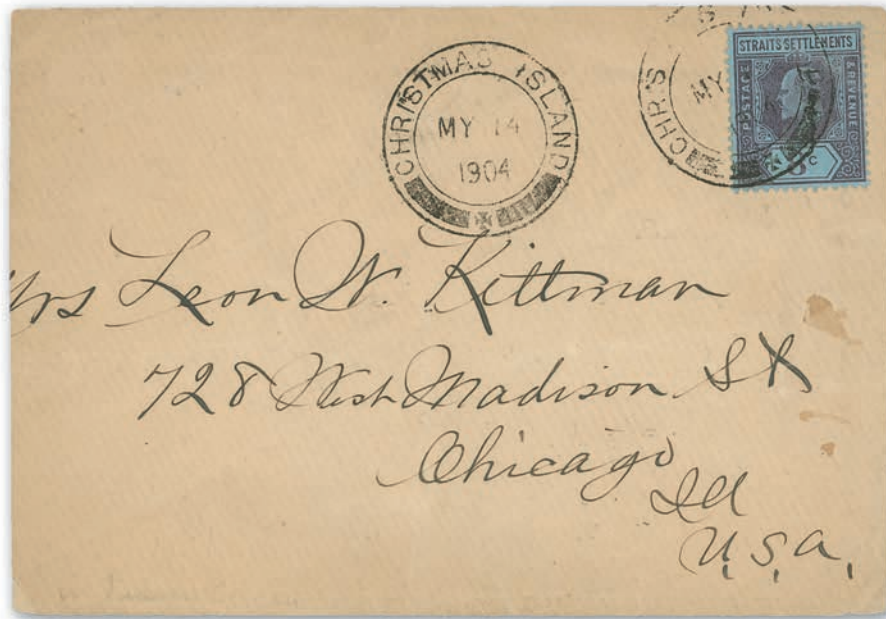 CHRISTMAS ISLAND
MY 14
1904
CHRIS
MY
STRAITS SETTLEMENTS
POSTAGE
& REVENUE
8 C
Mrs Leon W. Kittman
728 West Madison St
Chicago
Ill
U.S.A.